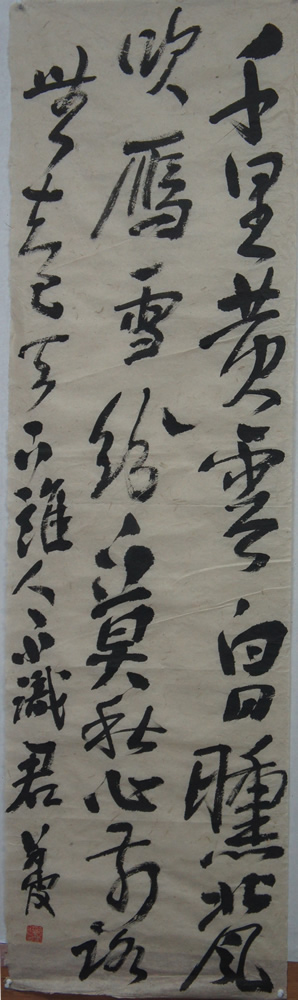 千里黄雲白日曛北風
吹鴈雪紛々莫愁前路
無知己天下誰人不識君